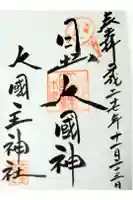 奉拝 平成二七年十一月二三日
日出大國神
大國主神社